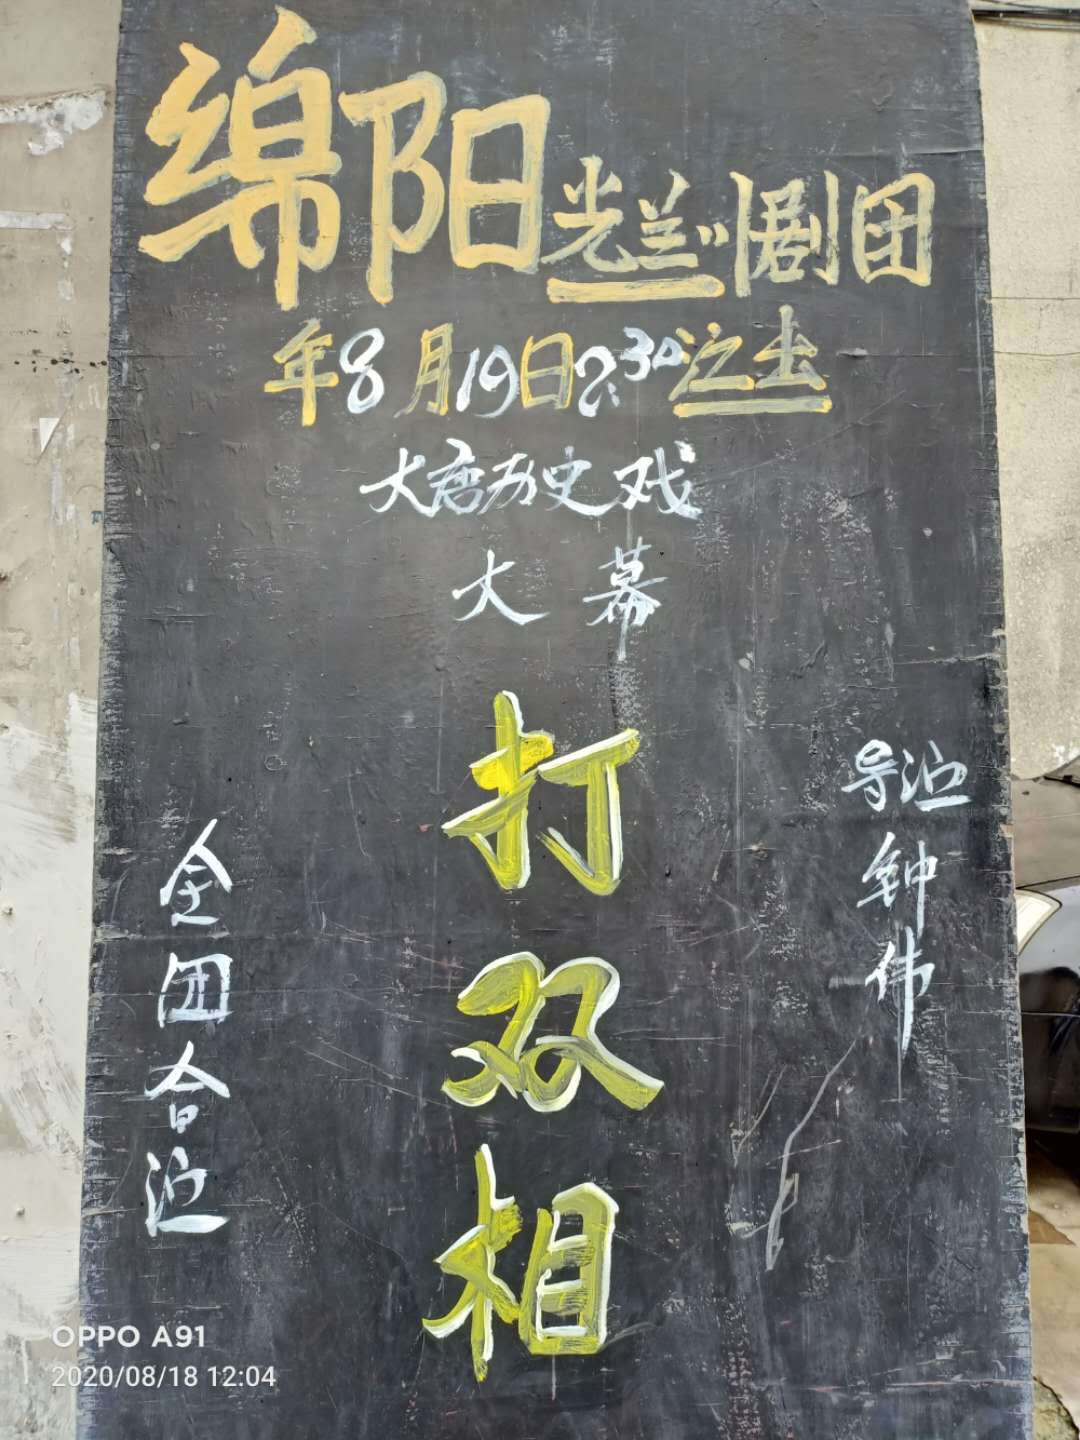 绵阳光兰川剧团
年8月19日2:30演出
大唐历史戏
大幕
打双相
导演钟伟
全团合演
OPPO A91
2020/08/18 12:04